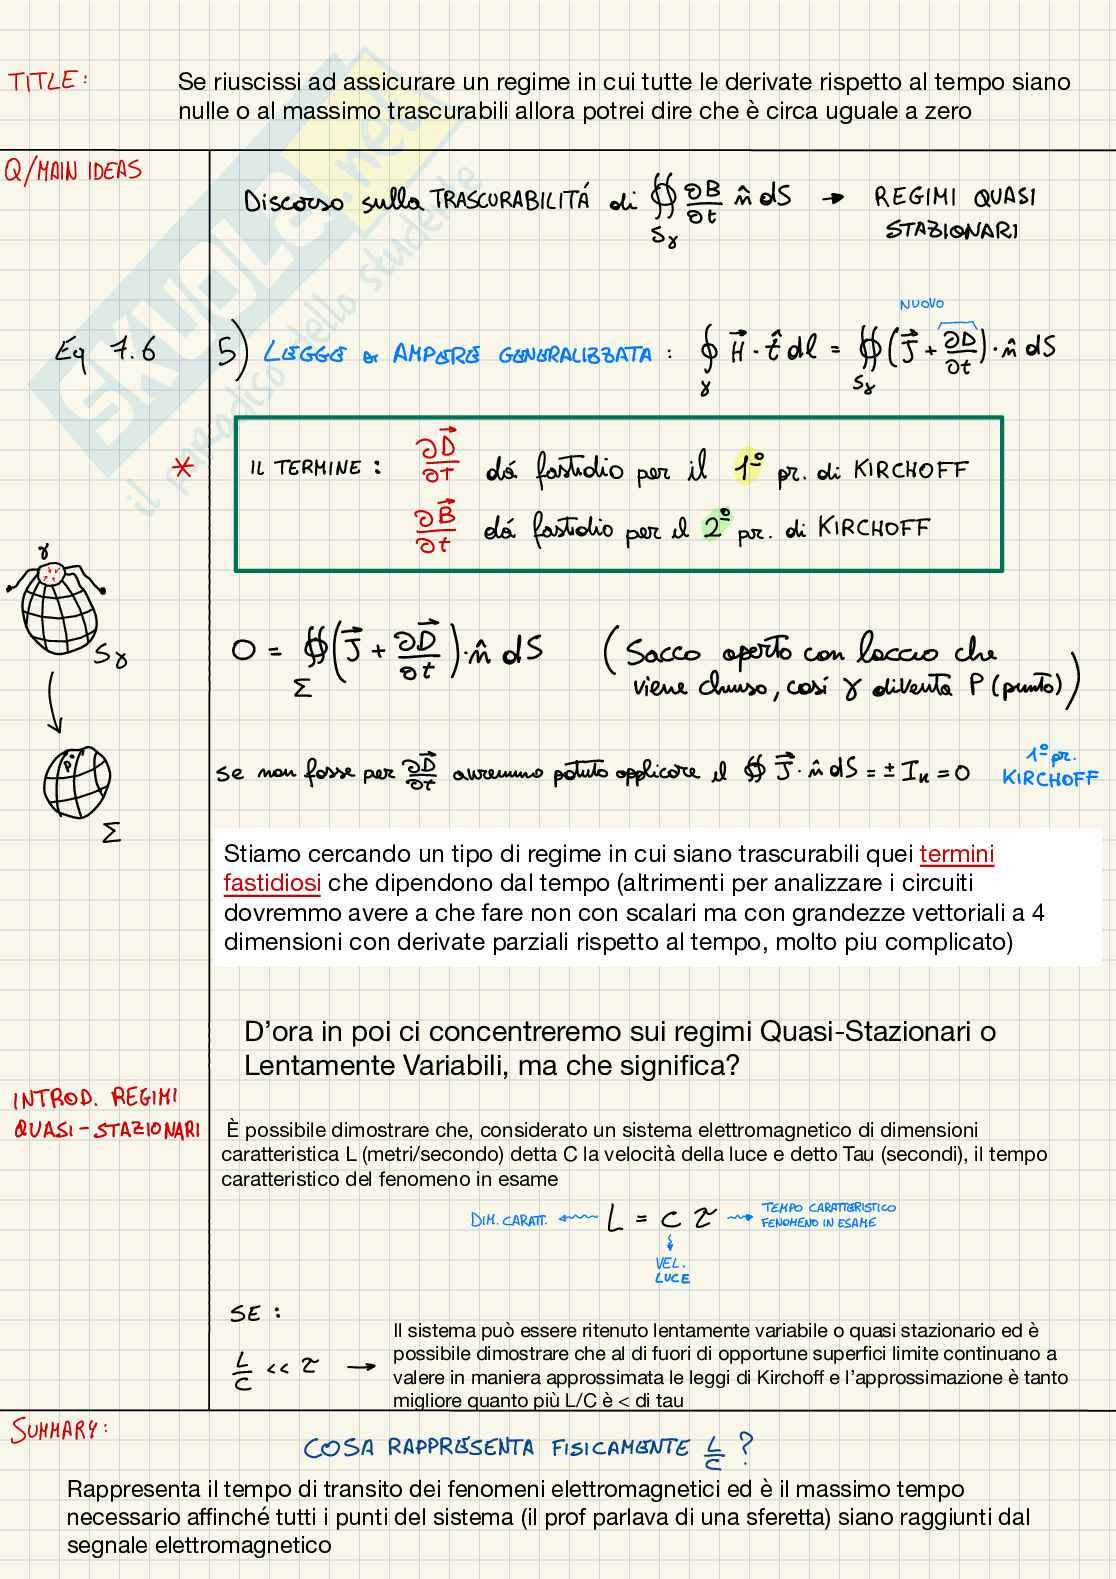 TITLE:
Se riuscissi ad assicurare un regime in cui tutte le derivate rispetto al tempo siano
nulle o al massimo trascurabili allora potrei dire che è circa uguale a zero
Q/MAIN IDEAS
Discorso sulla TRASCURABILITÁ di ∯ ∂B/∂t n̂ dS → REGIMI QUASI
Sγ
STAZIONARI
NUOVO
Eq 7.6
5) LEGGE di AMPERE GENERALIZZATA : ∮ H⃗ · t̂ dl = ∯ (J⃗ + ∂D/∂t) · n̂ dS
γ Sγ
* IL TERMINE : ∂D⃗/∂t dá fastidio per il 1° pr. di KIRCHOFF
∂B⃗/∂t dá fastidio per il 2° pr. di KIRCHOFF
γ
Sγ
0 = ∯ (J⃗ + ∂D⃗/∂t) · n̂ dS (Sacco aperto con laccio che
Σ
viene chiuso, cosí γ diventa P (punto))
P
Σ
se non fosse per ∂D⃗/∂t avremmo potuto applicare il ∯ J⃗ · n̂ dS = ± Iₖ = 0
1° pr.
KIRCHOFF
Stiamo cercando un tipo di regime in cui siano trascurabili quei termini
fastidiosi che dipendono dal tempo (altrimenti per analizzare i circuiti
dovremmo avere a che fare non con scalari ma con grandezze vettoriali a 4
dimensioni con derivate parziali rispetto al tempo, molto piu complicato)
D’ora in poi ci concentreremo sui regimi Quasi-Stazionari o
Lentamente Variabili, ma che significa?
INTROD. REGIMI
QUASI-STAZIONARI
È possibile dimostrare che, considerato un sistema elettromagnetico di dimensioni
caratteristica L (metri/secondo) detta C la velocità della luce e detto Tau (secondi), il tempo
caratteristico del fenomeno in esame
DIM. CARATT. ← L = c τ → TEMPO CARATTERISTICO
FENOMENO IN ESAME
VEL.
LUCE
SE :
L/C << τ →
Il sistema può essere ritenuto lentamente variabile o quasi stazionario ed è
possibile dimostrare che al di fuori di opportune superfici limite continuano a
valere in maniera approssimata le leggi di Kirchoff e l’approssimazione è tanto
migliore quanto più L/C è < di tau
SUMMARY:
COSA RAPPRESENTA FISICAMENTE L/C ?
Rappresenta il tempo di transito dei fenomeni elettromagnetici ed è il massimo tempo
necessario affinché tutti i punti del sistema (il prof parlava di una sferetta) siano raggiunti dal
segnale elettromagnetico
SKUOLA.net
il paradiso dello studente